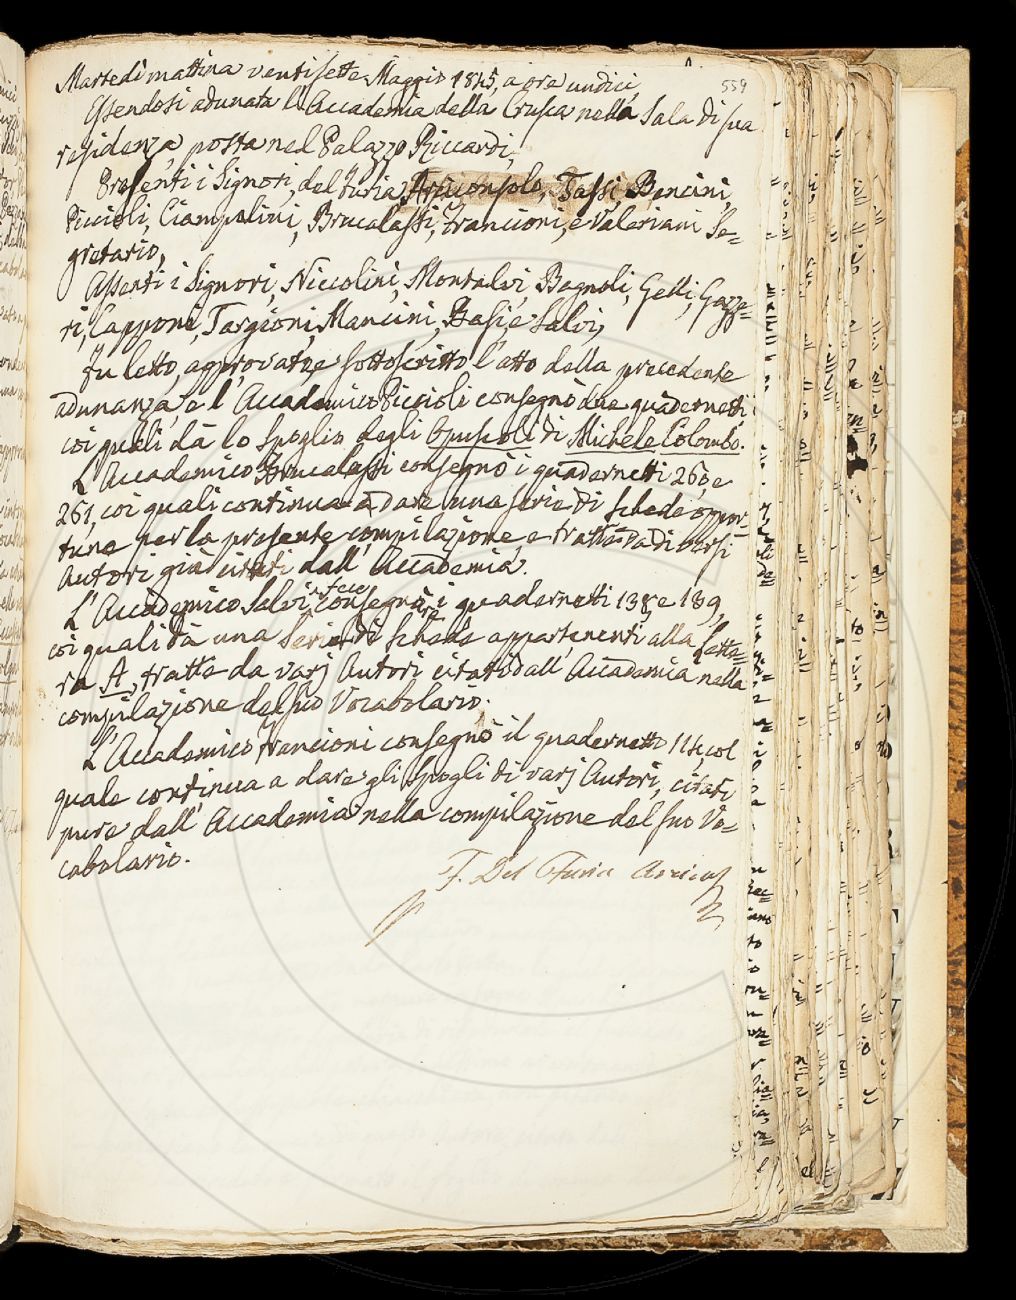 559
Martedì mattina ventisette Maggio 1845, a ore undici,
Essendosi adunata l'Accademia della Crusca nella Sala di sua
residenza, posta nel Palazzo Riccardi,
Presenti i Signori, del Furia, Arciconsolo, Tassi, Bencini,
Piccioli, Ciampolini, Brucalassi, Francioni, e Valeriani Se=
gretario,
Assenti i Signori, Niccolini, Montalvi, Bagnoli, Gelli, Gazze=
ri, Capponi, Targioni, Mancini, Basi, e Salvi,
Fu letto, approvato, e sottoscritto l'atto della precedente
adunanza, e l'Accademico Piccioli consegnò due quadernetti,
coi quali dà lo Spoglio degli Opuscoli di Michele Colombo.
L'Accademico Brucalassi consegnò i quadernetti 260, e
261, coi quali continua a dare una serie di schede oppor=
tune per la presente compilazione, e tratte da diversi
Autori già citati dall'Accademia.
L'Accademico Salvi fece consegnare i quadernetti 138, e 139,
coi quali dà una Serie di schede appartenenti alla Lette=
ra A, tratte da varj Autori citati dall'Accademia nella
compilazione del suo Vocabolario.
L'Accademico Francioni consegnò il quadernetto 114, col
quale continua a dare gli Spogli di varj Autori, citati
pure dall'Accademia nella compilazione del suo Vo=
cabolario.
F. Del Furia